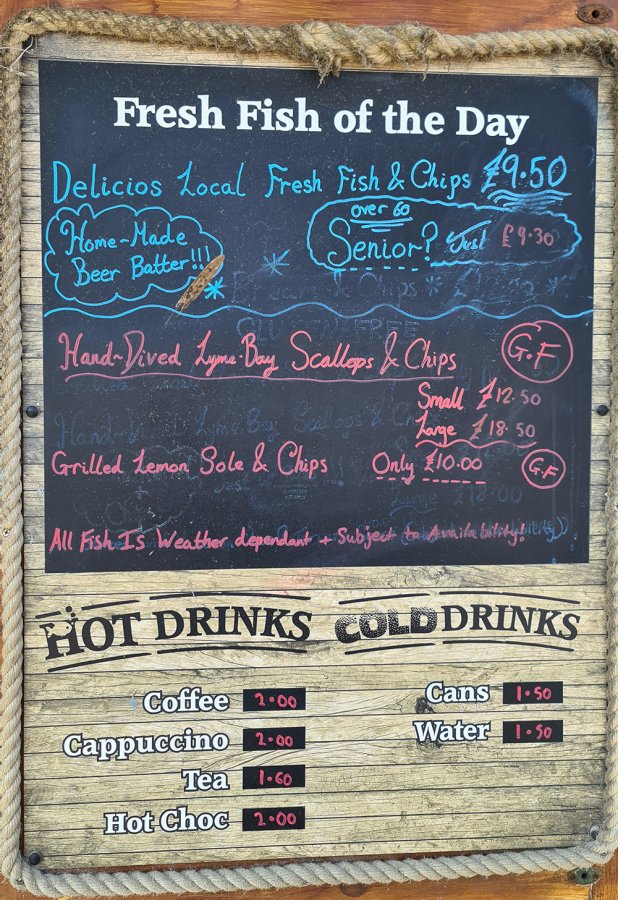 Fresh Fish of the Day
Delicios Local Fresh Fish & Chips £9.50
Home-Made
Beer Batter!!!
over 60
Senior? Just £9.30
GLUTEN FREE
Hand-Dived Lyme-Bay Scallops & Chips G.F
Small £12.50
Large £18.50
Grilled Lemon Sole & Chips Only £10.00 G.F
All Fish Is Weather dependant + Subject to Availability!
HOT DRINKS
Coffee 2.00
Cappuccino 2.00
Tea 1.60
Hot Choc 2.00
COLD DRINKS
Cans 1.50
Water 1.50